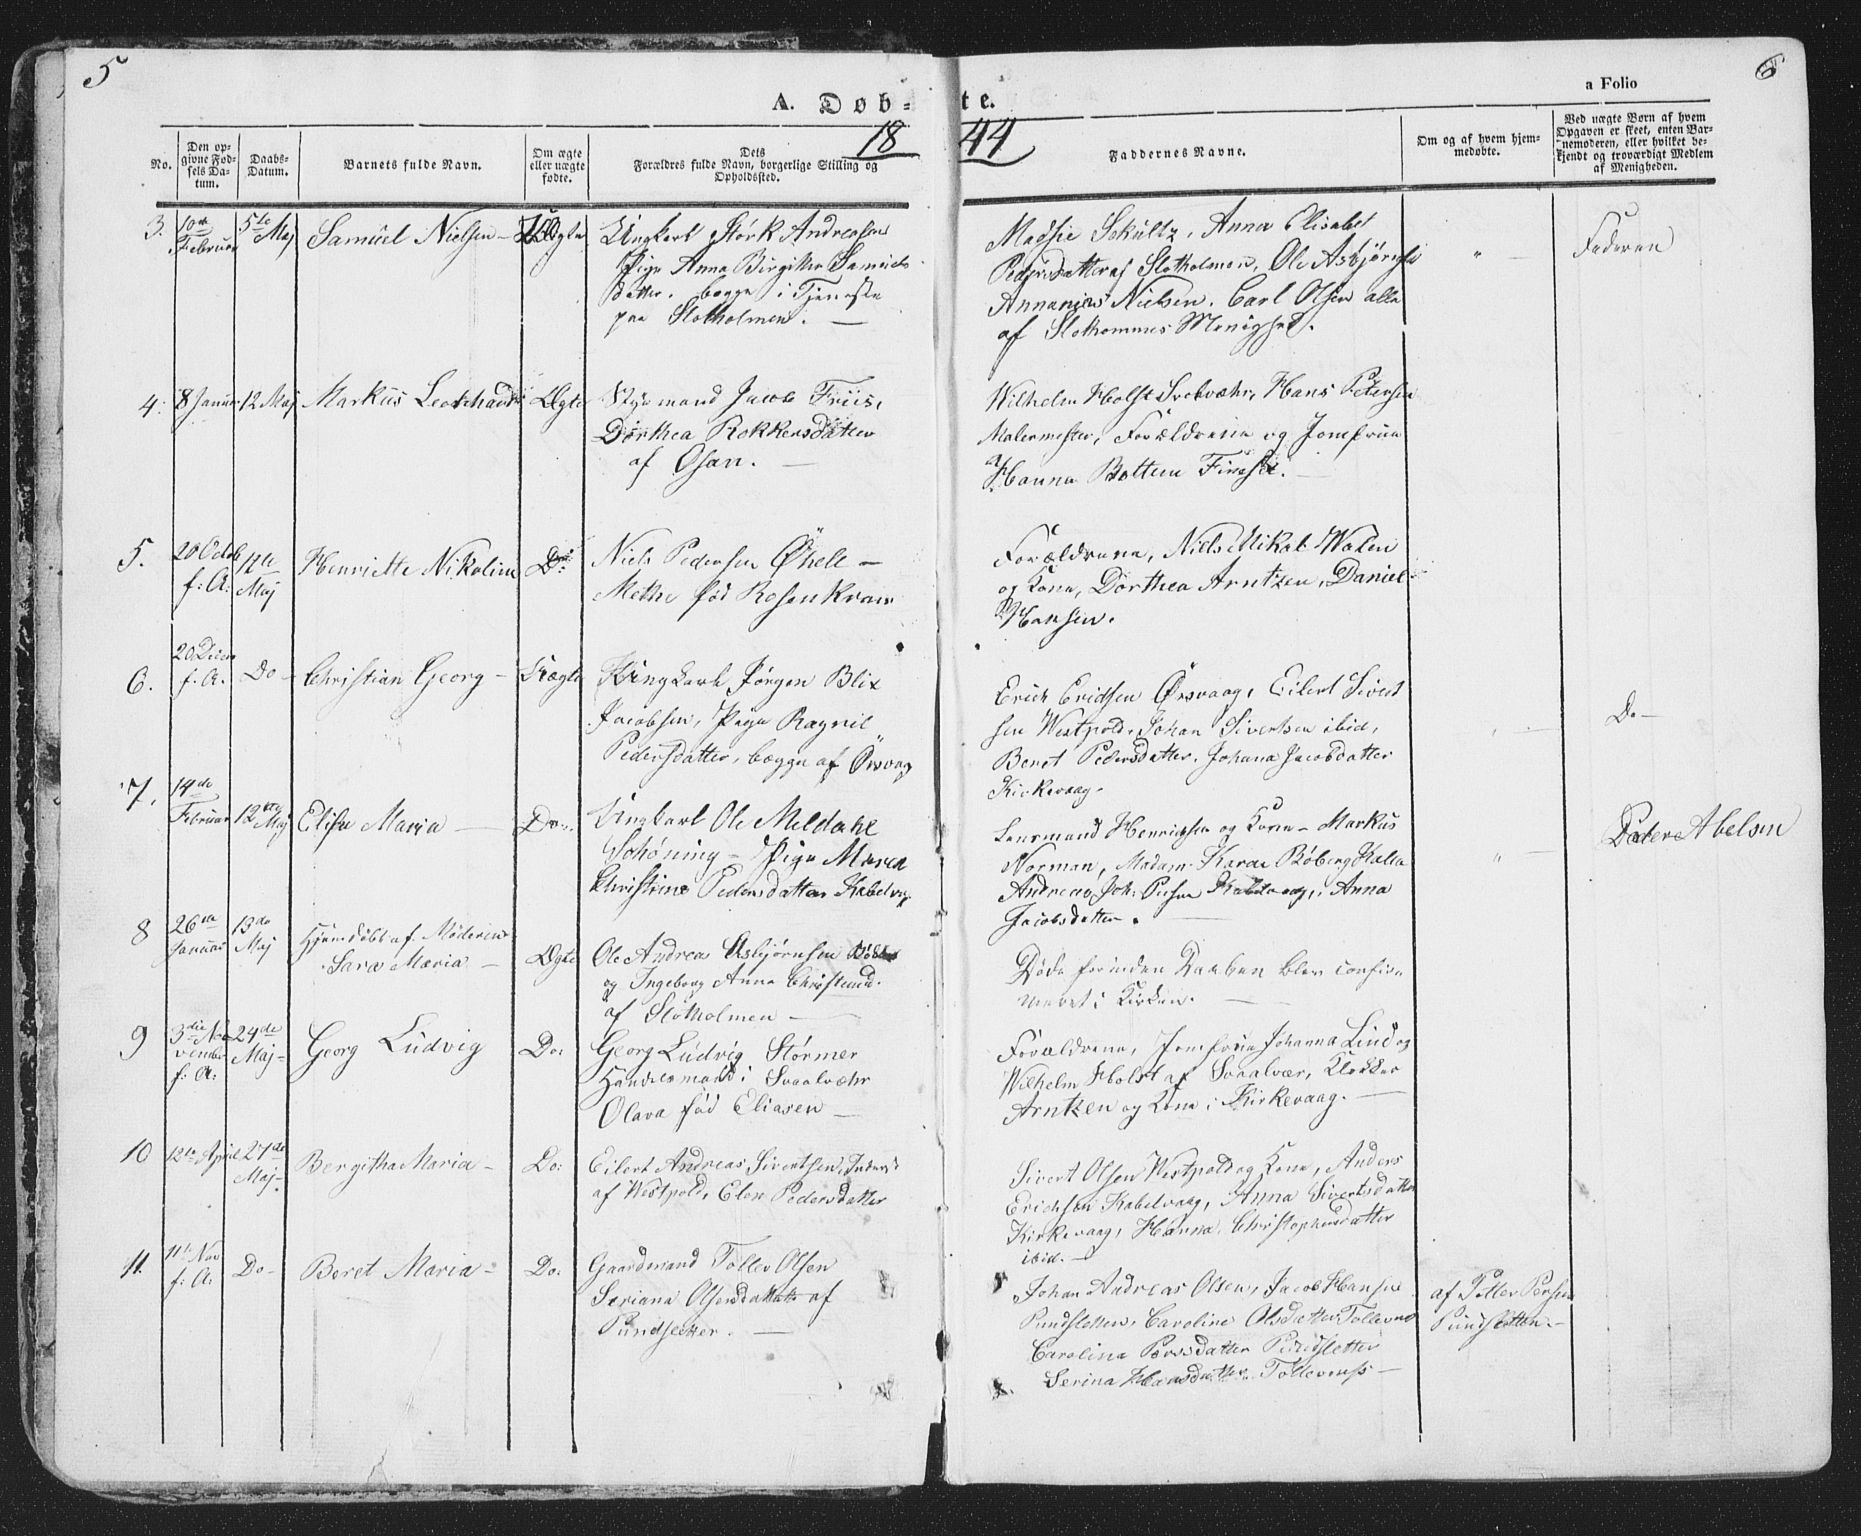 5
6
a Folio
A. Døb-
te.
18
44
No.
Den op-
givne Fød-
sels Da-
tum.
Daabs-
Datum.
Barnets fulde Navn.
Om ægte
eller uægte
fødte.
Dets
Forældres fulde Navn, borgerlige Stilling og
Opholdssted.
Faddernes Navne.
Om og af hvem hjem-
medøbte.
Ved uægte Børn af hvem
Opgaven er skeet, enten Bar-
nemoderen, eller hvilket be-
kjendt og troværdigt Medlem
af Menigheden.
3. 10de Februar
5te Maj
Samuel Nielsen
Ungkarl Størk Andreasen
Pige Anna Birgitha Samuels
datter, begge i Tjeneste
paa Slotholmen.
Madsie Schultz, Anna Elisabet
Pedersdatter af Slotholmen, Ole Asbjørns
Annanias Nielsen, Carl Olsen alle
af Menighed.
Faderen
4. 8 Januar
12 Maj
Markus
Ægte
Styrmand Jacob Friis,
Dorthea Rokkersdatter
af Osan.
Wilhelm Holst Svolvæhr, Hans Petersen
Malermester, Forældrene og Jomfrue
Hanna Boltten
5. 20 Octob
f: A:
12te
Maj
Henriette Nikoline
Do:
Niels Pedersen
Methe fød Rosenkrans
Forældrene, Niels Mikal
og Kone, Dorthea Arntzen, Daniel
Hansen.
6. 20 Decem
f. A.
Do
Christian Georg
Uægte
Ungkarl Jørgen Blix
Jacobsen, Pige Ragnil
Pedersdatter, begge af Ørsvaag
Erich Ericksen Ørsvaag, Eilert Sivert
sen Westpold, Johan Sivertsen ibid,
Beret Pedersdatter, Johana Jacobsdatter
Kirkevaag.
Do
7. 14de
Februar
12te Maj
Elise Maria
Do:
Ungkarl Ole Meldahl
Schøning - Pige Maren
Christine Pedersdatter Kabelvog
Lensmand Henriksen og Kone - Markus
Norman, Madam Karen Røberg Kalle
Andreas, Joh: Kabelvaag, Anna
Jacobsdatter.
Peder Abelsen
8 26de
Januar
13de
Maj
Hjemdøbt af Moderen
Sara Maria
Ægte
Ole Andreas Asbjørnsen
og Ingeborg Anna
af Slotholmen
Døde forinden Daaben blev confir-
meret i Kirken.
9 3die No-
vember
f: A:
24de
Maj
Georg Ludvig
Do:
Georg Ludvig Størmer
Handelsmand i Svaalvæhr
Olava fød Eliasen
Forældrene, Jomfrue Johanna Lind og
Wilhelm Holst af Svaalvær, Klokker
Arntzen og Kone i Kirkevaag.
10 12te April
27de
Maj
Bergitha Maria
Do:
Eilert Andreas Sivertsen,
af Westpold, Elen Pedersdatter
Sivert Olsen Westpold og Kone, Anders
Erichsen Kabelvaag, Anna Sivertsdatter
Kirkevaag, Hanna Christophersdatter
ibid.
11. 11te Nov
f: A:
Do
Beret Maria
Do:
Gaardmand Tollev Olsen
Seriana Olsensdatter af
Pundsletter.
Johan Andreas Olsen, Jacob Hansen
Pundsletten, Caroline Olsdatter
Carolina Persdatter Pundsletter
Serina Hansdatter
af Petter Persen
Pundsletten.